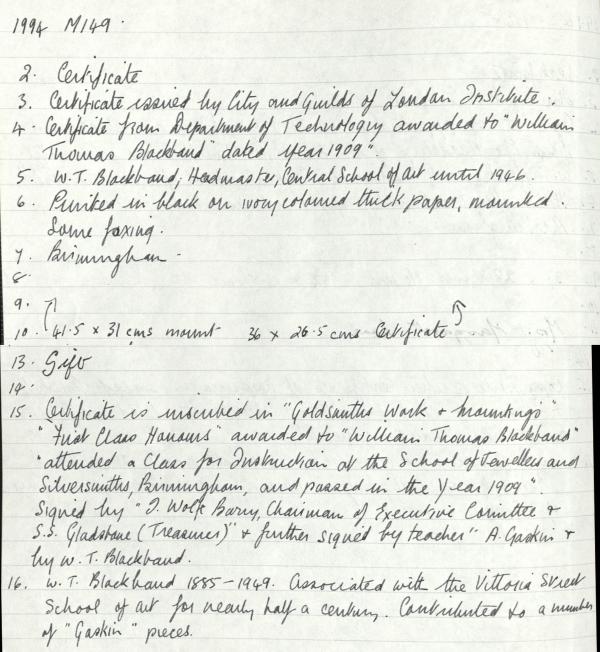 1994 M149.
2. Certificate
3. Certificate issued by City and Guilds of London Institute.
4. Certificate from Department of Technology awarded to "William
Thomas Blackband" dated year 1909".
5. W.T. Blackband, Headmaster, Central School of art until 1946.
6. Printed in black on ivory coloured thick paper, mounted.
Some foxing.
7. Birmingham.
8.
9.
10. 41.5 x 31 cms mount 36 x 26.5 cms Certificate
13. Gift
14.
15. Certificate is inscribed in "Goldsmiths Work + mountings"
"First Class Honours" awarded to "William Thomas Blackband"
"attended a Class for Instruction at the School of Jewellers and
Silversmiths, Birmingham, and passed in the Year 1909".
Signed by "J. Wolfe Barry, Chairman of Executive Comittee +
S.S. Gladstone (Treasurer)" + further signed by teacher" A. Gaskin +
by W.T. Blackband.
16. W.T. Blackband 1885-1949. Associated with the Vittoria Street
School of art for nearly half a century. Contributed to a number
of "Gaskin" pieces.